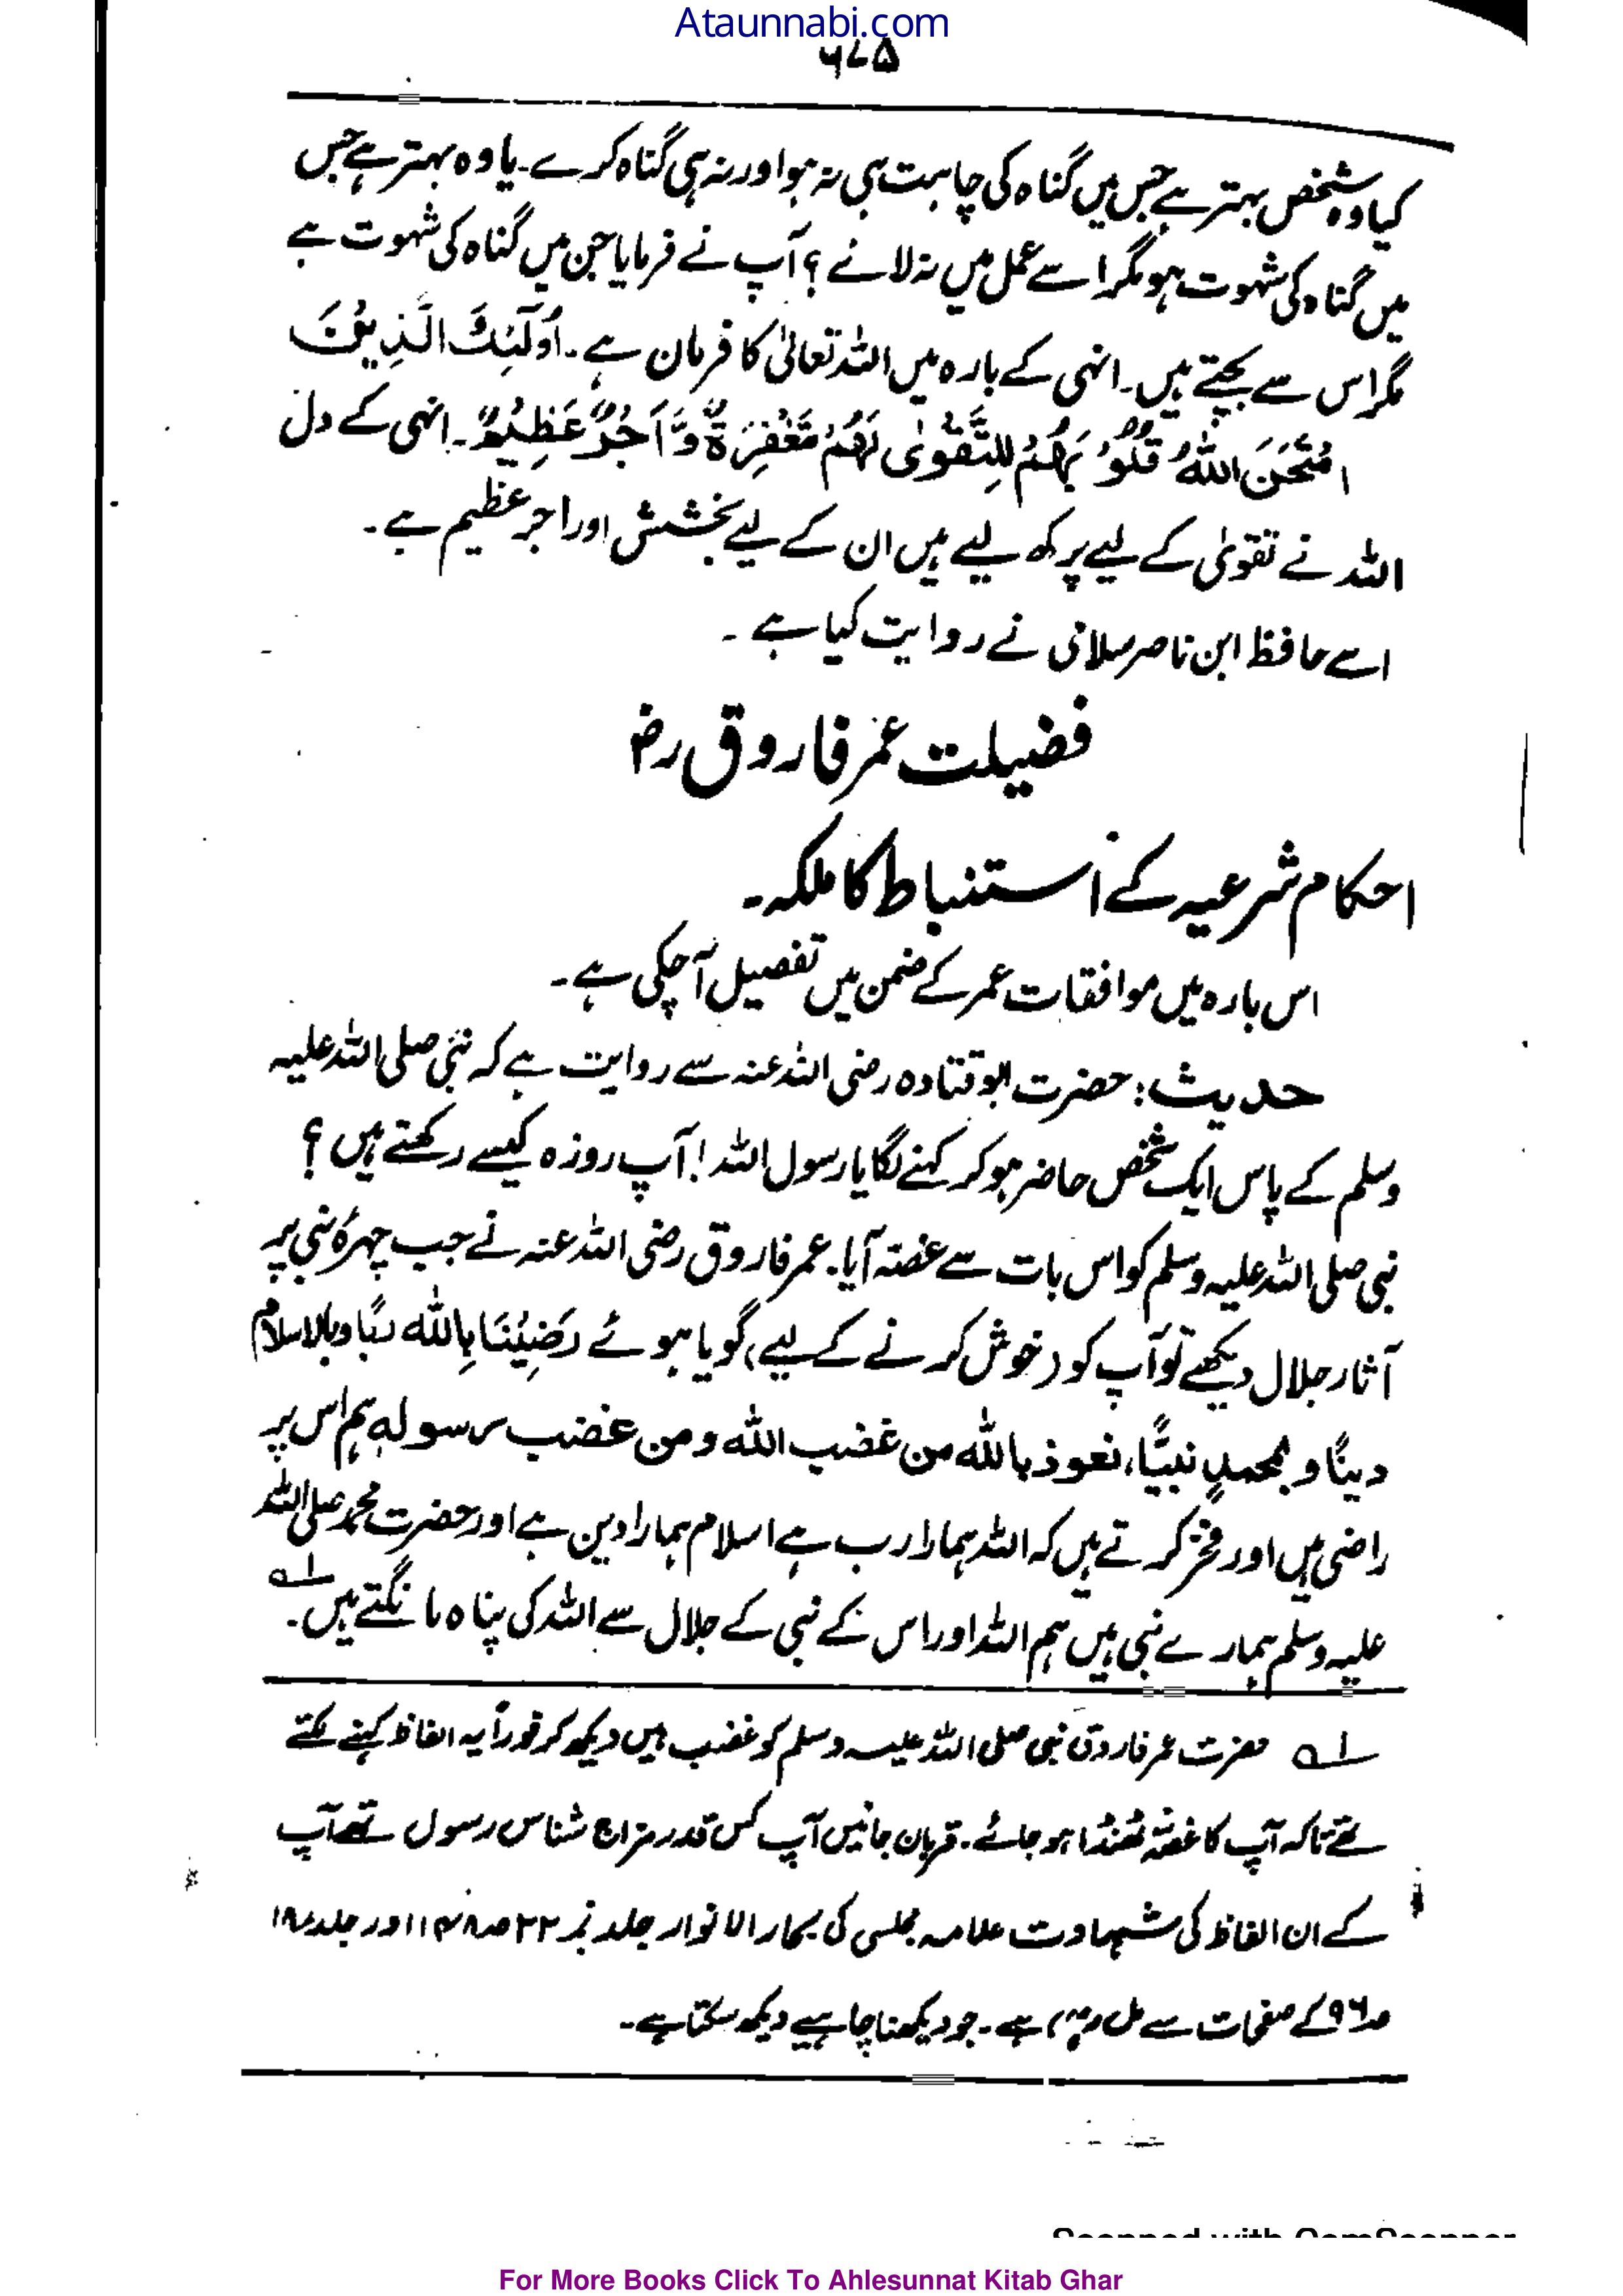 Ataunnabi.com
۶۷۵
کیا وہ شخص بہتر ہے جس میں گناہ کی چاہت ہی نہ ہو اور نہ ہی گناہ کرے۔ یا وہ بہتر ہے جس
میں گناہ کی شہوت ہو مگر اسے عمل میں نہ لائے؟ آپ نے فرمایا جن میں گناہ کی شہوت ہے
مگر اس سے بچتے ہیں۔ انہی کے بارہ میں اللہ تعالیٰ کا فرمان ہے۔ اُولٰٓئِكَ الَّذِیْنَ
امْتَحَنَ اللهُ قُلُوْبَهُمْ لِلتَّقْوٰى لَهُمْ مَّغْفِرَةٌ وَّاَجْرٌ عَظِیْمٌ۔ انہی کے دل
اللہ نے تقویٰ کے لیے پرکھ لیے ہیں ان کے لیے بخشش اور اجر عظیم ہے۔
اسے حافظ ابن ناصر سلامی نے روایت کیا ہے۔
فضیلت عمر فاروق رضؓ
احکام شرعیہ کے استنباط کا ملکہ۔
اس بارہ میں موافقات عمر کے ضمن میں تفصیل آ چکی ہے۔
حدیث: حضرت ابو قتادہ رضی اللہ عنہ سے روایت ہے کہ نبی صلی اللہ علیہ
وسلم کے پاس ایک شخص حاضر ہو کر کہنے لگا یا رسول اللہ! آپ روزہ کیسے رکھتے ہیں؟
نبی صلی اللہ علیہ وسلم کو اس بات سے غصہ آیا۔ عمر فاروق رضی اللہ عنہ نے جب چہرۂ نبی پر
آثار جلال دیکھے تو آپ کو (خوش کرنے کے لیے) گویا ہوئے رَضِیْنَا بِالله ربًّا وبالاسلام
دینًا و بمحمدٍ نبیًّا، نعوذ بالله من غضب الله ومن غضب رسولهٖ ہم اس پر
راضی ہیں اور فخر کرتے ہیں کہ اللہ ہمارا رب ہے اسلام ہمارا دین ہے اور حضرت محمد صلی اللہ
علیہ وسلم ہمارے نبی ہیں ہم اللہ اور اس کے نبی کے جلال سے اللہ کی پناہ مانگتے ہیں۔ ؎۱
؎۱ حضرت عمر فاروق نبی صلی اللہ علیہ وسلم کو غضب میں دیکھ کر فوراً یہ الفاظ کہنے لگتے
تھے تاکہ آپ کا غصہ ٹھنڈا ہو جائے۔ قربان جائیں آپ کس قدر مزاج شناس رسول تھے آپ
کے ان الفاظ کی شہادت علامہ مجلسی کی بحار الانوار جلد نمبر ۲۲ صـ ۱۴۸ اور جلد ۱۸
صـ ۹۶ کے صفحات سے مل رہی ہے۔ جو دیکھنا چاہیے دیکھ سکتا ہے۔
For More Books Click To Ahlesunnat Kitab Ghar